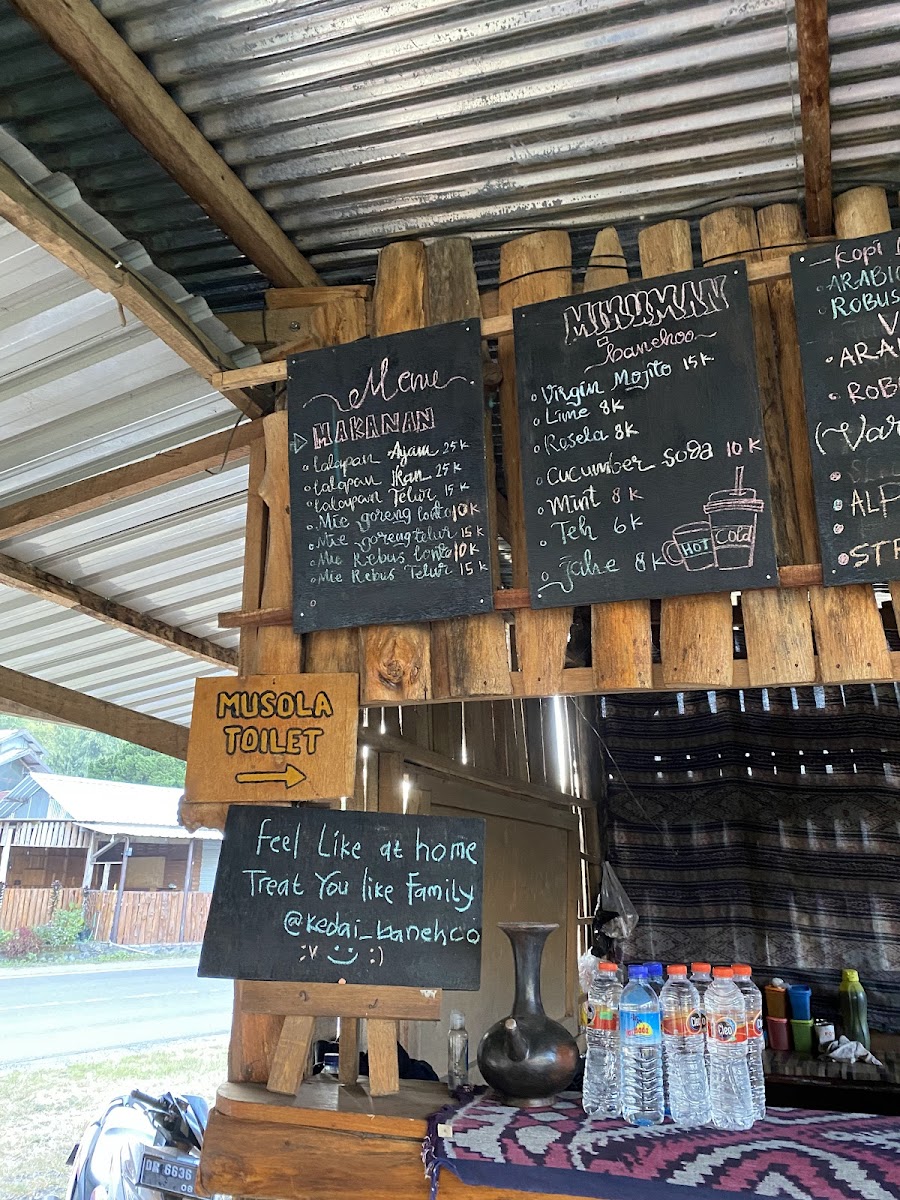 Menu
MAKANAN
Lalapan Ayam 25K
Lalapan Ikan 25K
Lalapan Telur 15K
Mie goreng Lonto 10K
Mie goreng telur 15K
Mie Rebus Lonto 10K
Mie Rebus Telur 15K
MINUMAN
banehoo
Virgin Mojito 15K
Lime 8K
Resela 8K
Cucumber soda 10K
Mint 8K
Teh 6K
Jahe 8K
HOT
Cold
Kopi
ARABIC
ROBUS
V
ARA
ROB
(Var
ALP
STR
MUSOLA
TOILET
Feel Like at home
Treat You like Family
@kedai_banehoo
:v :)
Cleo
Cleo
DR 6636